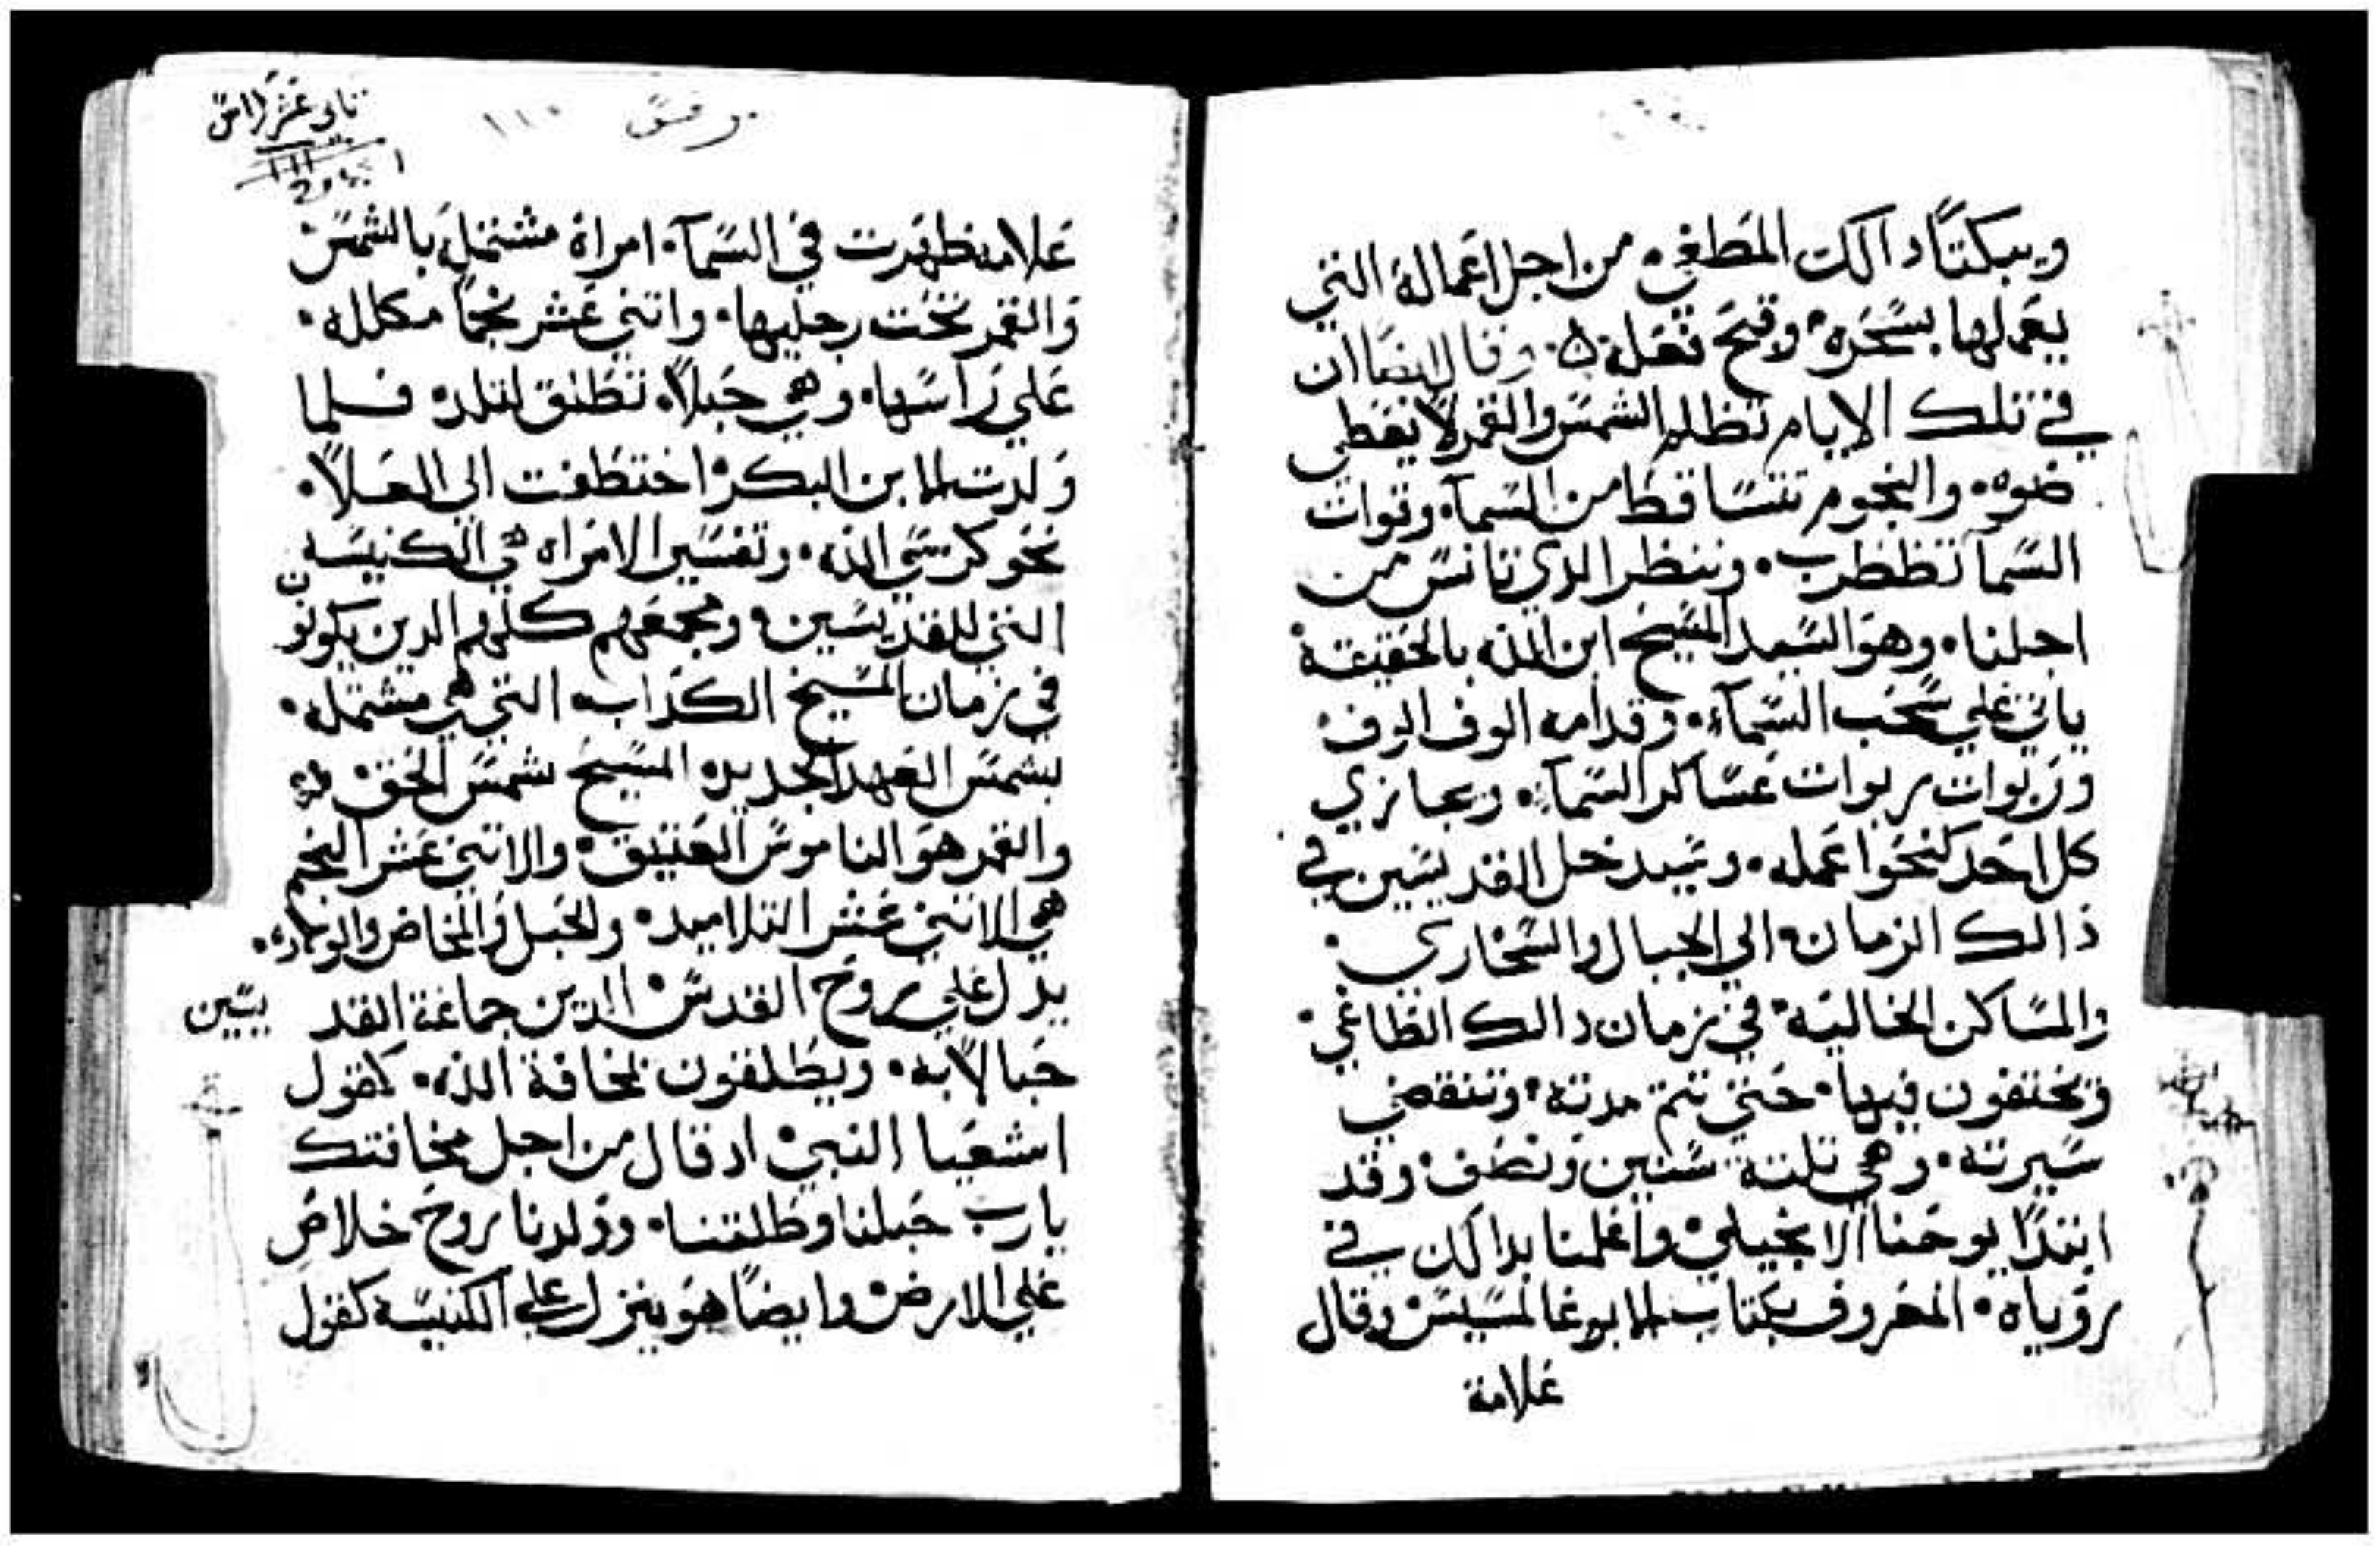 ويبكتا دالك المطغي • من اجل اعماله التي
يعملها بسحره • وقبح فعله ۞ وقال ايضا ان
في تلك الايام تظلم الشمس والقمر لا يعطي
ضوه • والنجوم تتساقط من السمآ • وقوات
السمآ تظطرب • وننظر الذي تانس من
اجلنا • وهو السيد المسيح ابن الله بالحقيقة
ياتي علي سحب السمآء • وقدامه الوف الوف •
وربوات ربوات عساكر السمآء • ويجازي
كل احد كنحوا عمله • وسيدخل القديسين في
ذالك الزمان • الي الجبال والسخاري •
والمساكن الخالية • في زمان دالك الطاغي •
وتختفون فيها • حتي تتم مدته • وتنقضي
سيرته • وهي تلتة سنين ونصف • وقد
ابتدا يوحنا الانجيلي • واعلمنا بدالك في
روياه • المعروف بكتاب الابوغالمسيس وقال
علامة
تاني عشر راس
١١٠
علامه ظهرت في السمآ • امراة مشتمله بالشمس •
والقمر تحت رجليها • واتني عشر نجما مكلله •
علي راسها • وهي حبلا • تطلق لتلد • فلما
ولدت الابن البكر • اختطفت الي العلا •
نحو كرسي الله • وتفسير الامراه هي الكنيسه
التي للقديسين • ومجمعهم كلهم الدين يكونون
في زمان المسيخ الكداب • التي هي مشتمله •
بشمس العهد الجديد • المسيح شمس الحق ۞
والقمر هو الناموس العتيق • والاتني عشر النجم
هي الاتني عشر التلاميد • والحبل والمخاض والولاده •
يدل علي روح القدس • الدين جماعة القديسين
حبالا به • ويطلقون بمخافة الله • كقول
اشعيا النبي • اد قال من اجل مخافتك
يارب حبلنا وطلقنا • وولدنا روح خلاص
علي الارض • وايضا هو ينزل علي الكنيسه كقول